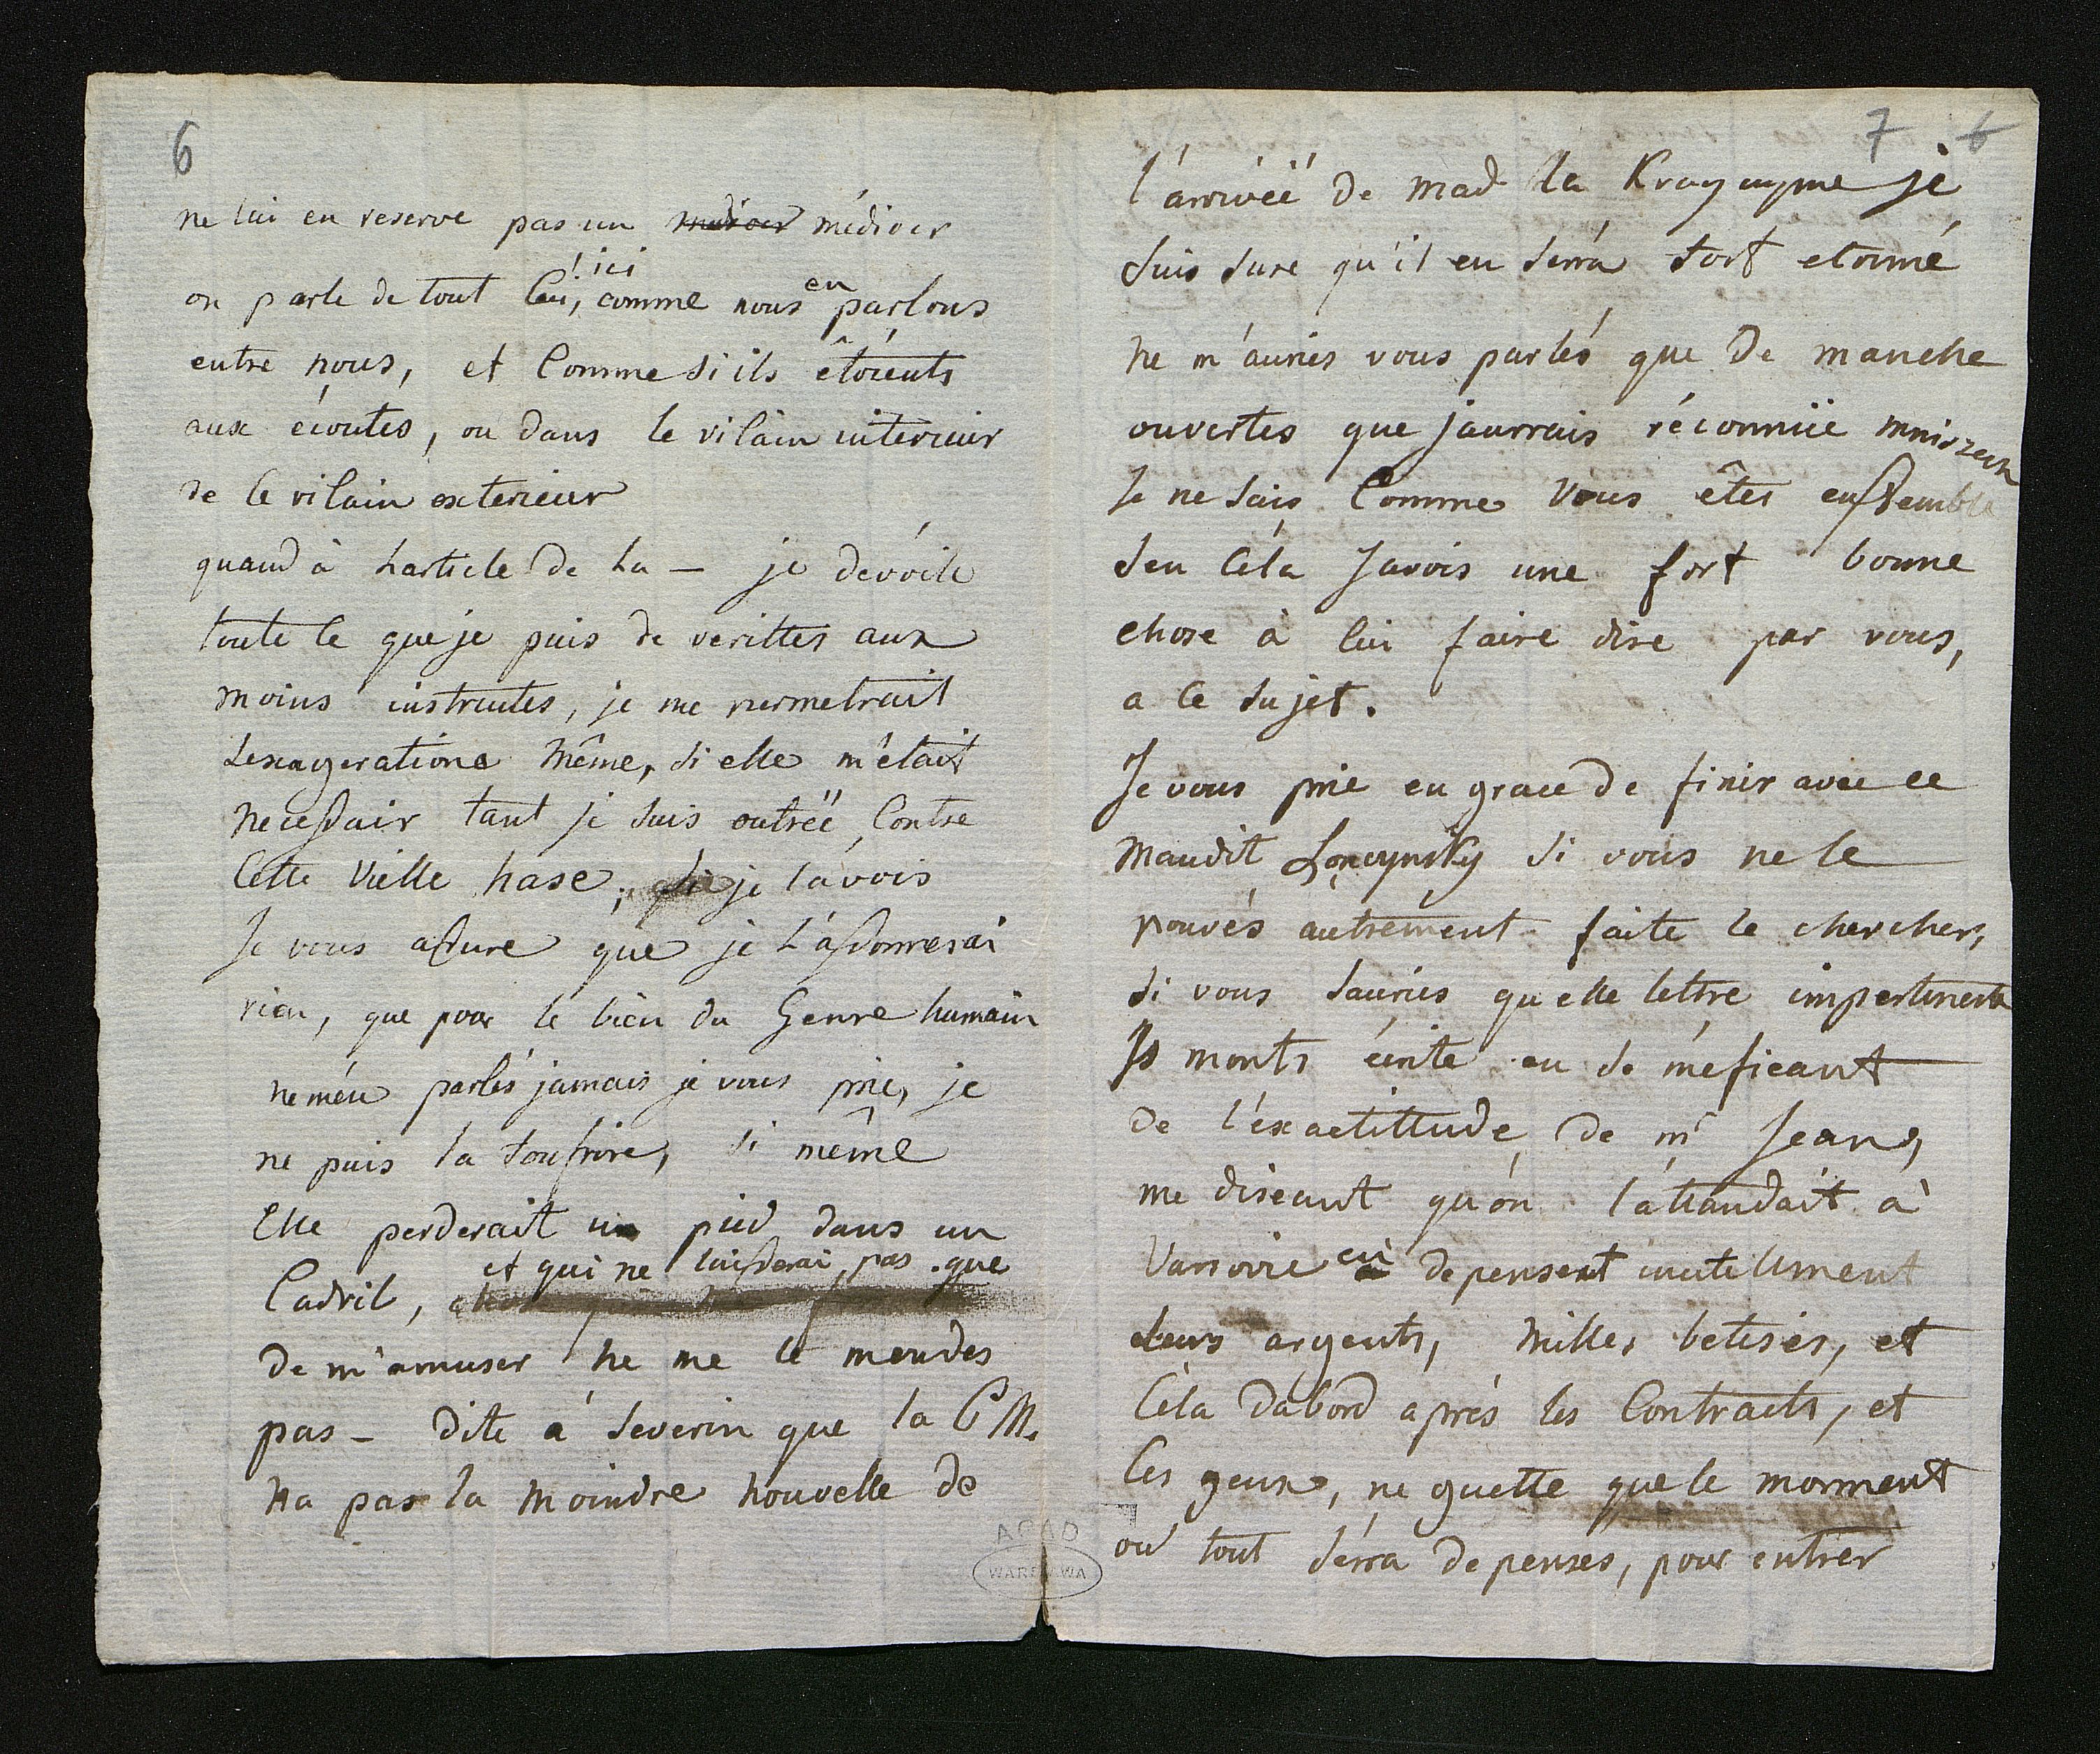 6
ne lui en reserve pas un mediocr médiocr
on parle de tout ceci, ici comme nous en parlons
entre nous, et Comme si ils êtoients
aux écoutes, ou dans le vilain interieur
de ce vilain exterieur
quand à l'article de la — je dévoile
toute ce que je puis de verittes aux
moins instruites, je me permetrait
L'exageratione même, si elle m'était
necessair tant je suis outréé, Contre
Cette Vielle hase, si je l'avois
Je vous assure que je L'assomerai
rien, que pour le bien du Genre humain
ne m'én parlés jamais je vous prie, je
ne puis la soufrire, si même
Elle perderait un pied dans un
Cadril, et qui ne laisserai, pas que
de m'amuser ne me le mendes
pas — dite à Severin que la C M.
na pas la moindre nouvelle de
7 6
l'arrivéé de mad la je
suis sure qu'il en serra fort etonné
ne m'auries vous parlés que de manche
ouvertes que jaurrais réconnüe mniszech
Je ne sais Comme vous êtes enssemble
sen Céla Javois une fort bonne
chose à lui faire dire par vous,
a ce sujet.
Je vous prie en grace de finir avec ce
maudit Lonczynsky si vous ne le
pouvés autrement faite le chercher,
si vous sauries qu elle lettre impertinente
Is monts écrite en se méficant
de l'éxactittude de mr Jean,
me diseant qu'on l'attandait à
Varsovie où depensent inutellment
Leurs argents, milles betises, et
Céla dabord aprés les Contracts, et
Ces geux, ne guette que le morment
où tout sérra depenses, pour entrer
AGAD
WARSZAWA